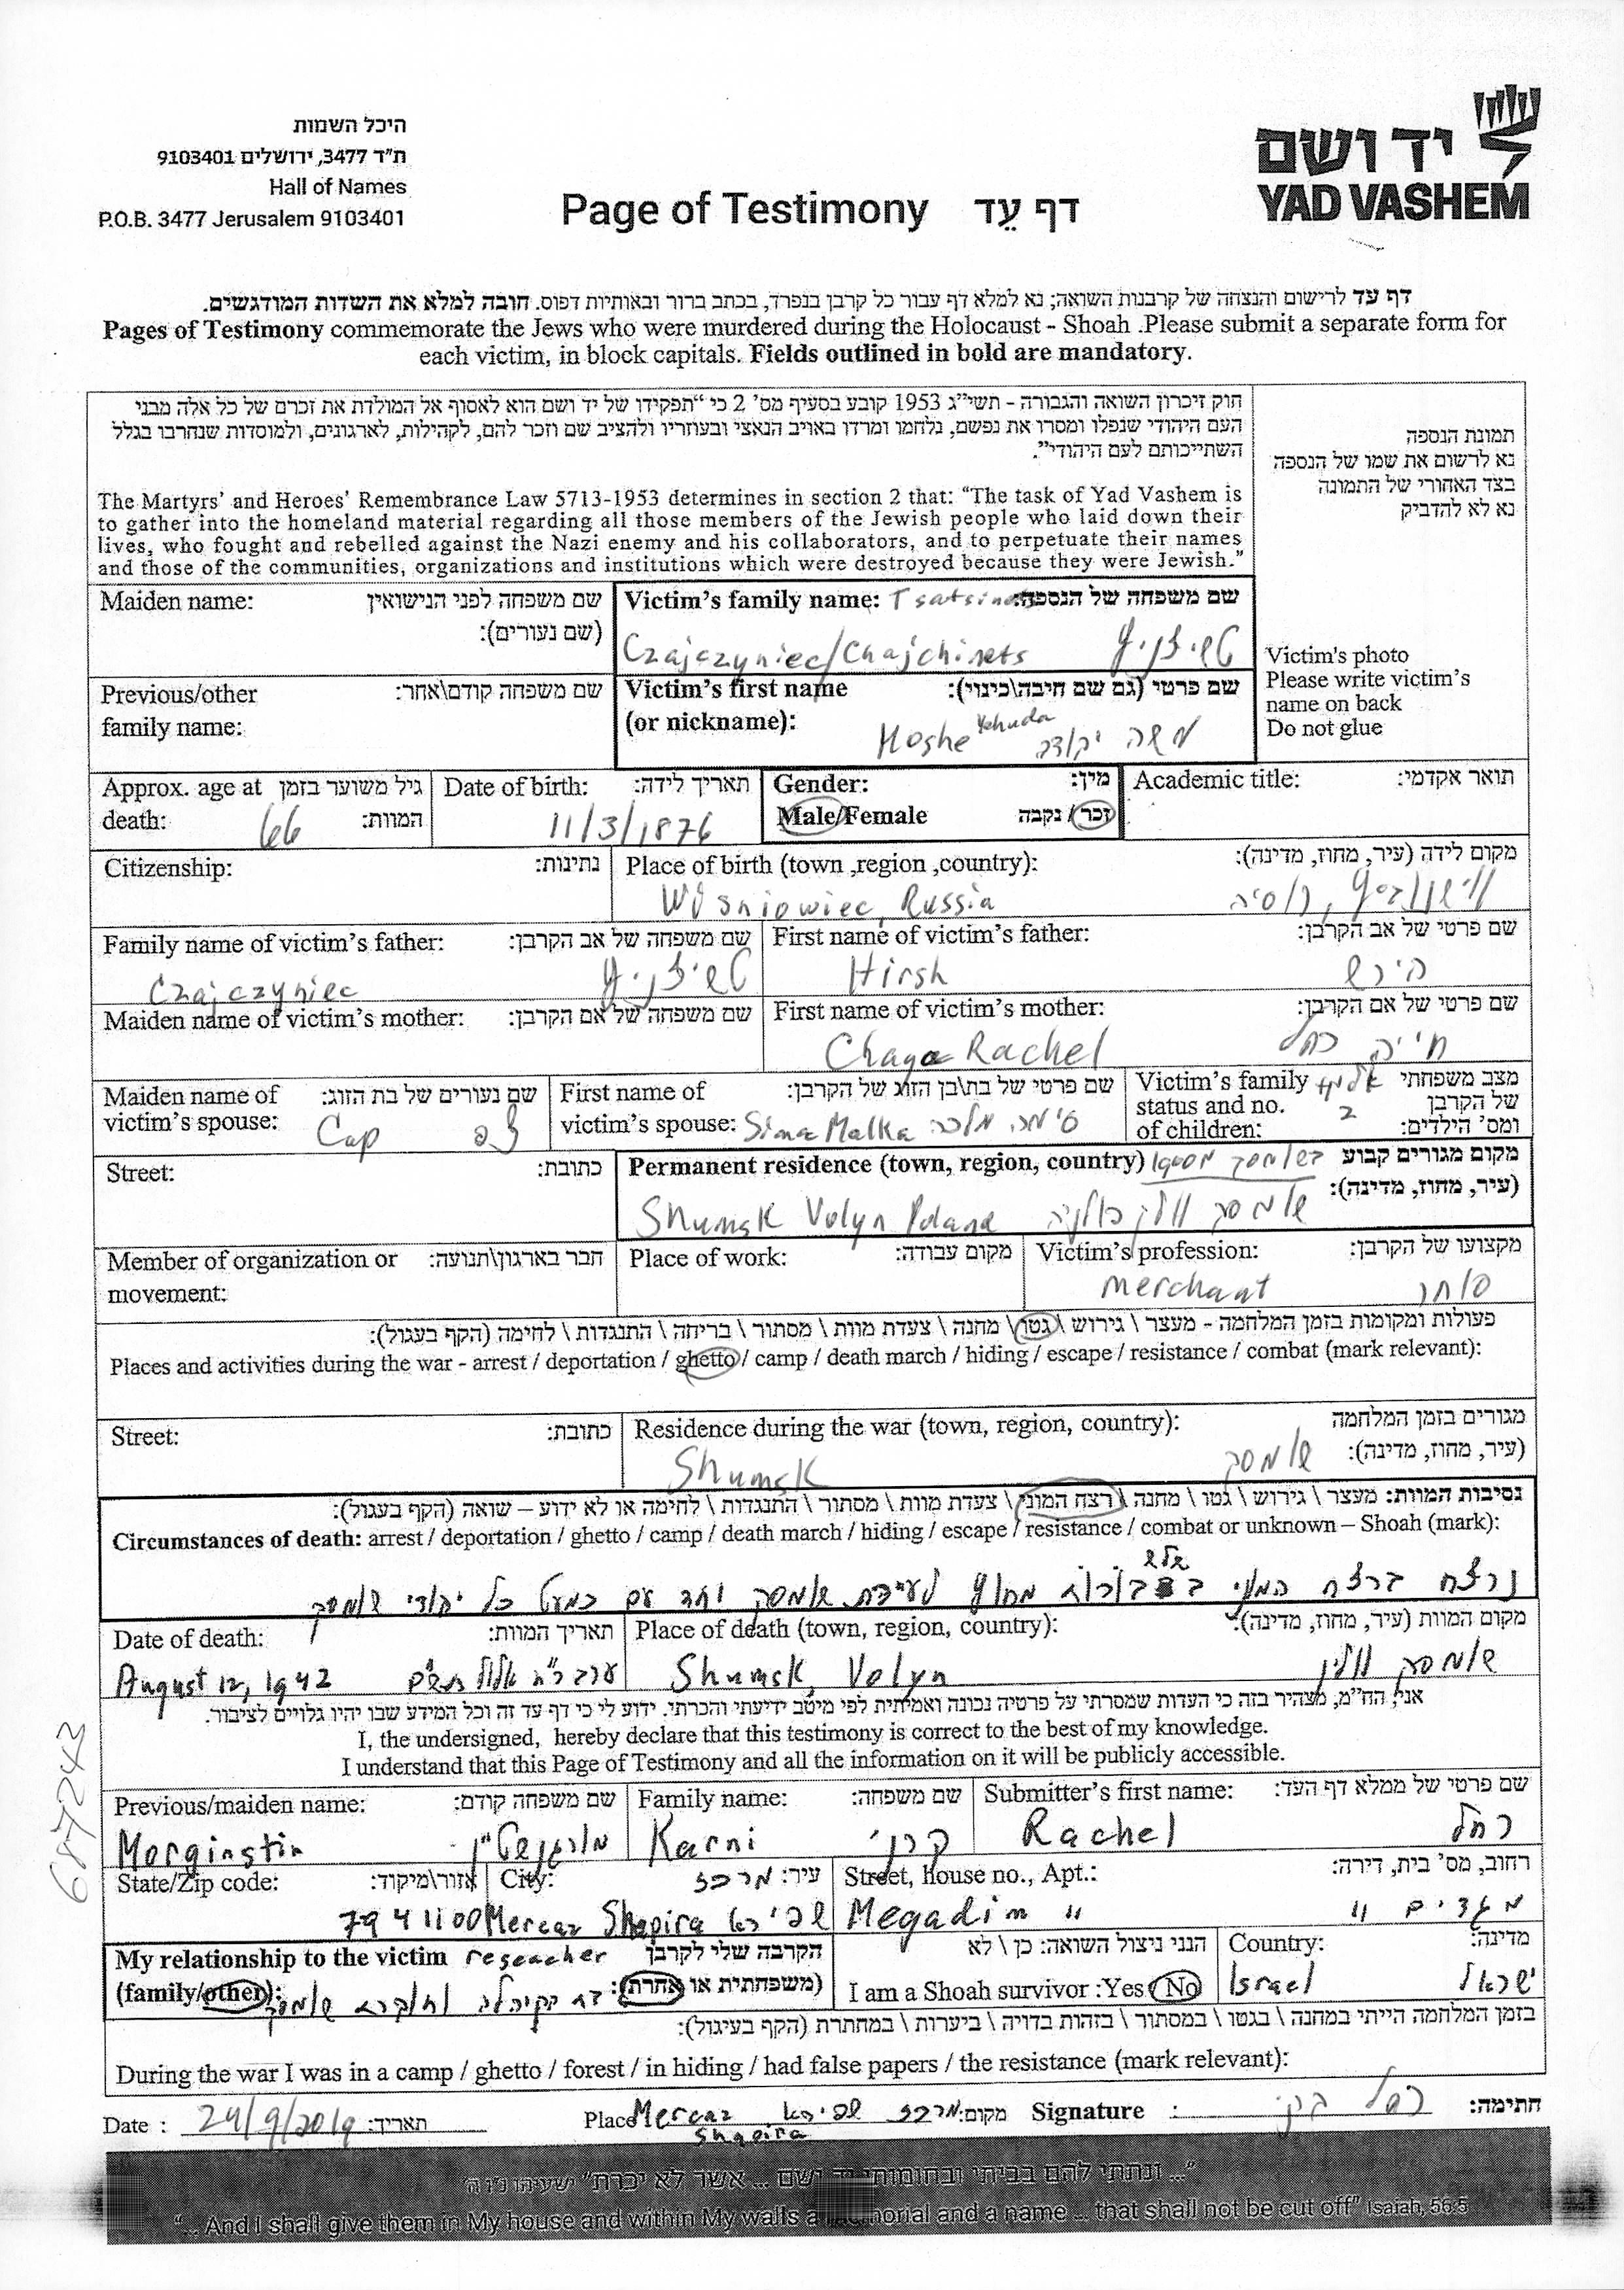 היכל השמות
ת"ד 3477, ירושלים 9103401
Hall of Names
P.O.B. 3477 Jerusalem 9103401
Page of Testimony דף עֵד
יד ושם
YAD VASHEM
דף עד לרישום והנצחה של קרבנות השואה; נא למלא דף עבור כל קרבן בנפרד, בכתב ברור ובאותיות דפוס. חובה למלא את השדות המודגשים.
Pages of Testimony commemorate the Jews who were murdered during the Holocaust - Shoah .Please submit a separate form for
each victim, in block capitals. Fields outlined in bold are mandatory.
חוק זיכרון השואה והגבורה - תשי"ג 1953 קובע בסעיף מס' 2 כי "תפקידו של יד ושם הוא לאסוף אל המולדת את זכרם של כל אלה מבני
העם היהודי שנפלו ומסרו את נפשם, נלחמו ומרדו באויב הנאצי ובעוזריו ולהציב שם וזכר להם, לקהילות, לארגונים, ולמוסדות שנחרבו בגלל
השתייכותם לעם היהודי".
The Martyrs' and Heroes' Remembrance Law 5713-1953 determines in section 2 that: "The task of Yad Vashem is
to gather into the homeland material regarding all those members of the Jewish people who laid down their
lives, who fought and rebelled against the Nazi enemy and his collaborators, and to perpetuate their names
and those of the communities, organizations and institutions which were destroyed because they were Jewish."
תמונת הנספה
נא לרשום את שמו של הנספה
בצד האחורי של התמונה
נא לא להדביק
Victim's photo
Please write victim's
name on back
Do not glue
Maiden name: שם משפחה לפני הנישואין
(שם נעורים):
Victim's family name: שם משפחה של הנספה:
Czajczyniec/Chajchinets טשייצ'ניץ
Previous/other שם משפחה קודם\אחר:
family name:
Victim's first name שם פרטי (גם שם חיבה\כינוי):
(or nickname): Moshe Yehuda משה יהודה
Approx. age at גיל משוער בזמן
death: 66 המוות:
Date of birth: תאריך לידה:
11/3/1876
Gender: מין:
Male/Female זכר / נקבה
Academic title: תואר אקדמי:
Citizenship: נתינות:
Place of birth (town ,region ,country): מקום לידה (עיר, מחוז, מדינה):
Wisniowiec, Russia רוסיה
Family name of victim's father: שם משפחה של אב הקרבן:
Czajczyniec טשייצ'ניץ
First name of victim's father: שם פרטי של אב הקרבן:
Hirsh הירש
Maiden name of victim's mother: שם משפחה של אם הקרבן:
First name of victim's mother: שם פרטי של אם הקרבן:
Chaya Rachel חייה רחל
Maiden name of שם נעורים של בת הזוג:
victim's spouse: Cap צפ
First name of שם פרטי של בת\בן הזוג של הקרבן:
victim's spouse: Sima Malka סימה מלכה
Victim's family אלמן מצב משפחתי
status and no. 2 של הקרבן
of children: ומס' הילדים:
Street: כתובת:
Permanent residence (town, region, country) מקום מגורים קבוע
(עיר, מחוז, מדינה):
Shumsk Volyn Poland שומסק ווהלין פולניה
Member of organization or חבר בארגון\תנועה:
movement:
Place of work: מקום עבודה:
Victim's profession: מקצועו של הקרבן:
merchant סוחר
פעולות ומקומות בזמן המלחמה - מעצר \ גירוש \ גטו \ מחנה \ צעדת מוות \ מסתור \ בריחה \ התנגדות \ לחימה (הקף בעגול):
Places and activities during the war - arrest / deportation / ghetto / camp / death march / hiding / escape / resistance / combat (mark relevant):
Street: כתובת:
Residence during the war (town, region, country): מגורים בזמן המלחמה
(עיר, מחוז, מדינה):
Shumsk שומסק
נסיבות המוות: מעצר \ גירוש \ גטו \ מחנה \ רצח המוני \ צעדת מוות \ מסתור \ התנגדות \ לחימה או לא ידוע – שואה (הקף בעגול):
Circumstances of death: arrest / deportation / ghetto / camp / death march / hiding / escape / resistance / combat or unknown – Shoah (mark):
נרצח ברצח המוני בשלש בורות מחוץ לעיירת שומסק יחד עם כמעט כל יהודי שומסק
Date of death: תאריך המוות:
August 12, 1942 ערב ר"ח אלול תש"ב
Place of death (town, region, country): מקום המוות (עיר, מחוז, מדינה):
Shumsk, Volyn שומסק ווהלין
אני, הח"מ, מצהיר בזה כי העדות שמסרתי על פרטיה נכונה ואמיתית לפי מיטב ידיעתי והכרתי. ידוע לי כי דף עד זה וכל המידע שבו יהיו גלויים לציבור.
I, the undersigned, hereby declare that this testimony is correct to the best of my knowledge.
I understand that this Page of Testimony and all the information on it will be publicly accessible.
Previous/maiden name: שם משפחה קודם:
Morginstin מורגנשטיין
Family name: שם משפחה:
Karni קרני
Submitter's first name: שם פרטי של ממלא דף העד:
Rachel רחל
State/Zip code: אזור\מיקוד:
7941100
City: עיר: מרכז
Mercaz Shapira שפירא
Street, house no., Apt.: רחוב, מס' בית, דירה:
Megadim 11 מגדים 11
My relationship to the victim reseacher הקרבה שלי לקרבן
(family/other): (משפחתית או אחרת):
הקהילה וחוקרת שומסק
הנני ניצול השואה: כן \ לא
I am a Shoah survivor :Yes No
Country: מדינה:
Israel ישראל
בזמן המלחמה הייתי במחנה \ בגטו \ במסתור \ בזהות בדויה \ ביערות \ במחתרת (הקף בעיגול):
During the war I was in a camp / ghetto / forest / in hiding / had false papers / the resistance (mark relevant):
Date : 24/9/2019 תאריך:
Place Mercaz Shapira מרכז שפירא מקום:
Signature : רחל קרני חתימה:
"... ונתתי להם בביתי ובחומותי יד ושם ... אשר לא יכרת" ישעיהו נ"ו ה'
"... And I shall give them in My house and within My walls a memorial and a name ... that shall not be cut off" Isaiah, 56:5
687243